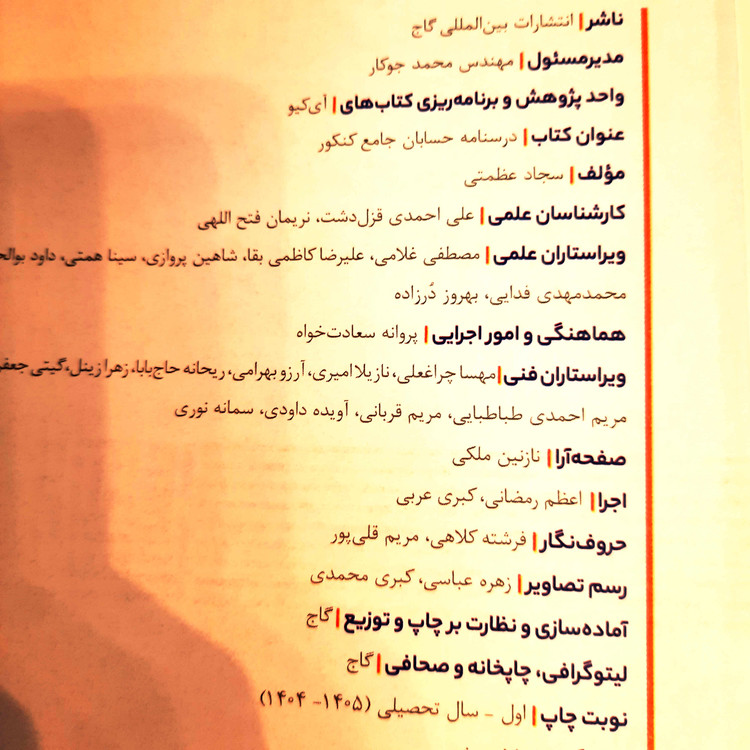 ناشر | انتشارات بین‌المللی گاج
مدیرمسئول | مهندس محمد جوکار
واحد پژوهش و برنامه‌ریزی کتاب‌های | آی‌کیو
عنوان کتاب | درسنامه حسابان جامع کنکور
مؤلف | سجاد عظمتی
کارشناسان علمی | علی احمدی قزل‌دشت، نریمان فتح اللهی
ویراستاران علمی | مصطفی غلامی، علیرضا کاظمی بقا، شاهین پروازی، سینا همتی، داود
محمدمهدی فدایی، بهروز دُرزاده
هماهنگی و امور اجرایی | پروانه سعادت‌خواه
ویراستاران فنی | مهسا چراغعلی، نازیلا امیری، آرزو بهرامی، ریحانه حاج‌بابا، زهرا زینل، گیتی
مریم احمدی طباطبایی، مریم قربانی، آویده داودی، سمانه نوری
صفحه‌آرا | نازنین ملکی
اجرا | اعظم رمضانی، کبری عربی
حروف‌نگار | فرشته کلاهی، مریم قلی‌پور
رسم تصاویر | زهره عباسی، کبری محمدی
آماده‌سازی و نظارت بر چاپ و توزیع | گاج
لیتوگرافی، چاپخانه و صحافی | گاج
نوبت چاپ | اول - سال تحصیلی (۱۴۰۵- ۱۴۰۴)